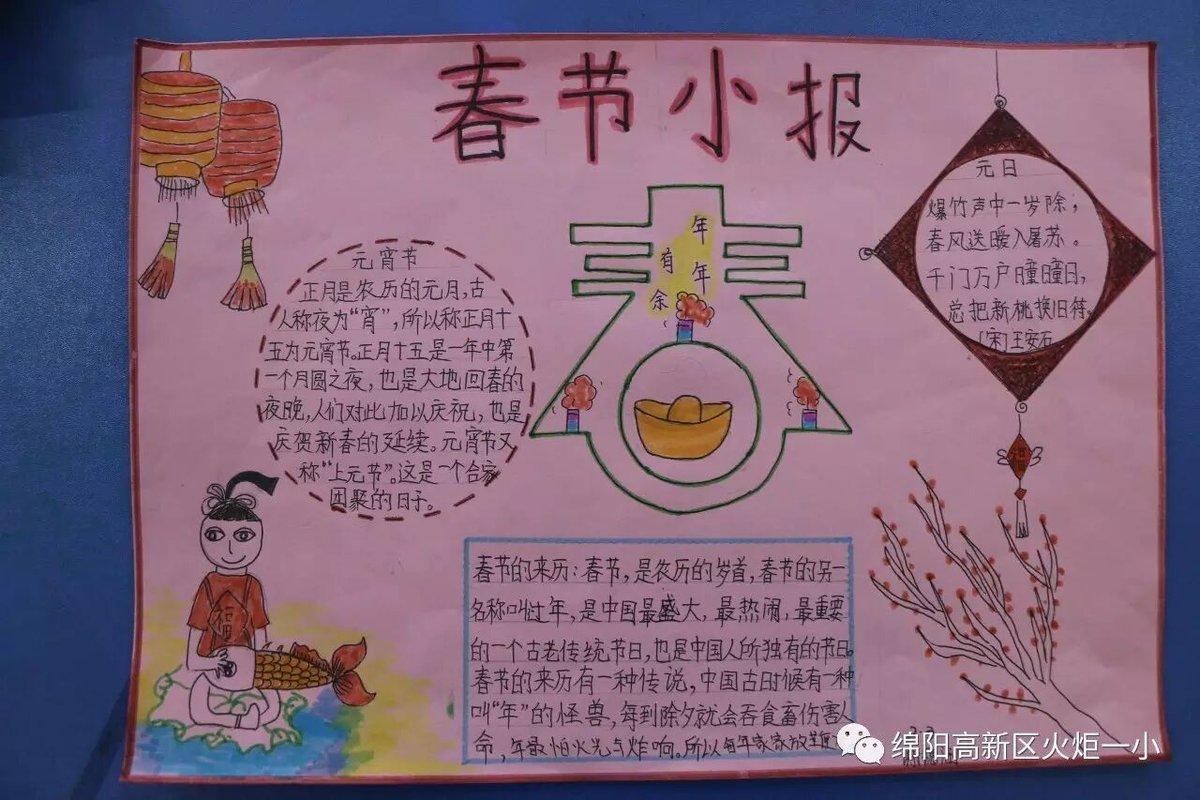 春节小报
元宵节
正月是农历的元月,古
人称夜为“宵”,所以称正月十
五为元宵节。正月十五是一年中第
一个月圆之夜,也是大地回春的
夜晚,人们对此加以庆祝,也是
庆贺新春的延续。元宵节又
称“上元节”。这是一个合家
团聚的日子。
年
年
有
余
元日
爆竹声中一岁除;
春风送暖入屠苏。
千门万户曈曈日,
总把新桃换旧符。
[宋]王安石
福
福
春节的来历:春节,是农历的岁首,春节的另一
名称叫过年,是中国最盛大,最热闹,最重要
的一个古老传统节日,也是中国人所独有的节日。
春节的来历有一种传说,中国古时候有一种
叫“年”的怪兽,每到除夕就会吞食畜伤害人
命,年最怕火光与炸响。所以每年家家放
绵阳高新区火炬一小